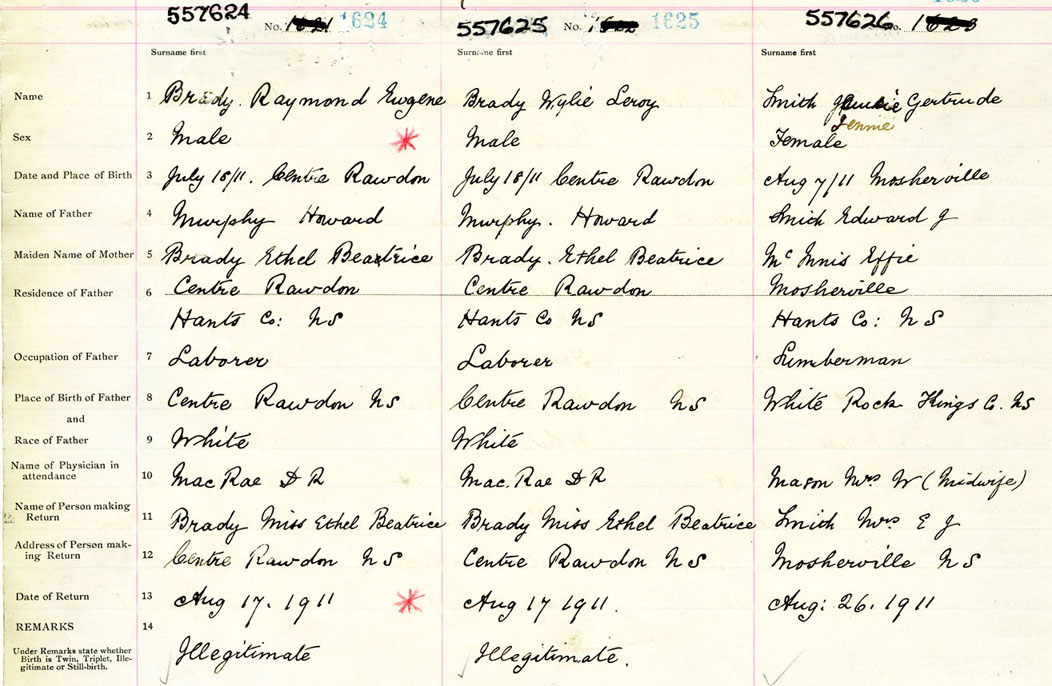 557624 No. 1624 557625 No. 1625 557626 No.
Surname first Surname first Surname first
Name 1 Brady. Raymond Eugene Brady Wylie Leroy Smith Gertrude
Jennie
Sex 2 Male Male Female
Date and Place of Birth 3 July 18/11. Centre Rawdon July 18/11 Centre Rawdon Aug 7/11 Mosherville
Name of Father 4 Murphy Howard Murphy. Howard Smith Edward J
Maiden Name of Mother 5 Brady Ethel Beatrice Brady. Ethel Beatrice Mc Innis Effie
Residence of Father 6 Centre Rawdon Centre Rawdon Mosherville
Hants Co: NS Hants Co NS Hants Co: NS
Occupation of Father 7 Laborer Laborer Lumberman
Place of Birth of Father 8 Centre Rawdon NS Centre Rawdon NS White Rock Kings Co. NS
and
Race of Father 9 White White
Name of Physician in
attendance 10 MacRae D R Mac.Rae D R Mason Mrs W (Midwife)
Name of Person making
Return 11 Brady Miss Ethel Beatrice Brady Miss Ethel Beatrice Smith Mrs E J
Address of Person mak-
ing Return 12 Centre Rawdon NS Centre Rawdon NS Mosherville NS
Date of Return 13 Aug 17. 1911 Aug 17 1911. Aug: 26. 1911
REMARKS 14
Under Remarks state whether
Birth is Twin, Triplet, Ille-
gitimate or Still-birth. Illegitimate Illegitimate.